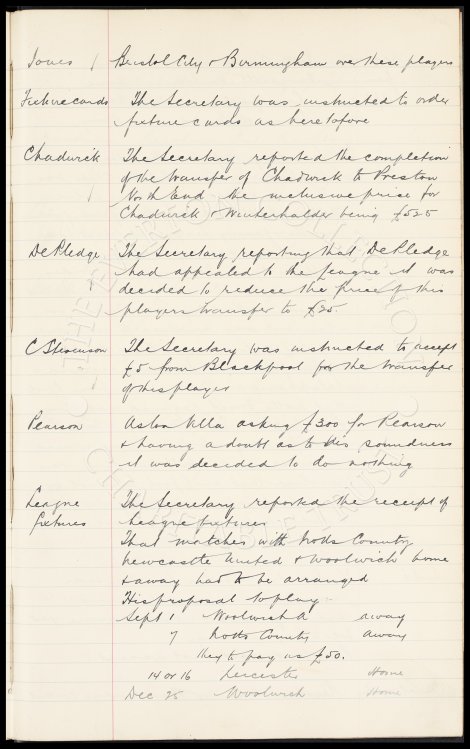 Jones Bristol City & Birmingham over these players
Fixture cards The Secretary was instructed to order
fixture cards as heretofore
Chadwick The Secretary reported the completion
of the transfer of Chadwick to Preston
North End the inclusive price for
Chadwick & Winterhalder being £525
De Pledge The Secretary reporting that De Pledge
had appealed to the League it was
decided to reduce the price of this
players transfer to £25.
C Stevenson The Secretary was instructed to accept
£5 from Blackpool for the transfer
of this player
Pearson Aston Villa asking £300 for Pearson
& having a doubt as to his soundness
it was decided to do nothing
League The Secretary reported the receipt of
fixtures league fixtures
That matches with Notts County
Newcastle United & Woolwich home
& away had to be arranged
His proposal to play
Sept 1 Woolwich A away
7 Notts County away
they to pay us £50.
14 or 16 Leicester Home
Dec 25 Woolwich Home